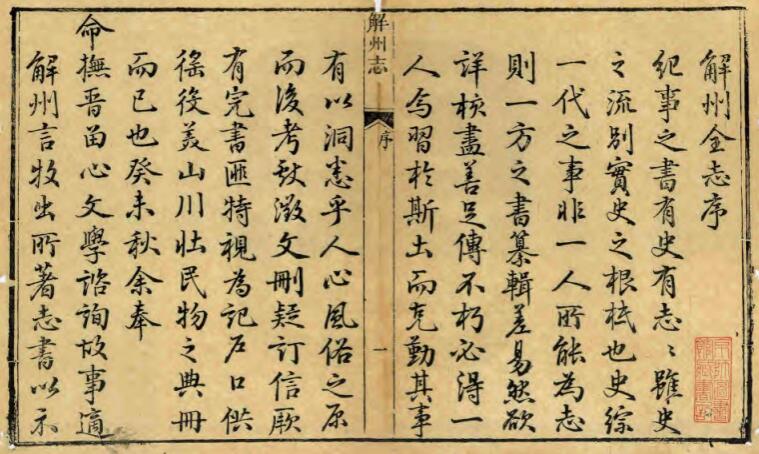 解州全志序
紀事之書有史有志〻雖史
之流别實史之根柢也史綜
一代之事非一人所能為志
則一方之書纂輯差易然欲
詳核盡善足傳不朽必得一
人焉習於斯土而克勤其事
解州志
序
一
有以洞悉乎人心風俗之原
而後考献徵文刪疑訂信厥
有完書匪特視為記户口供
徭役美山川壯民物之典冊
而已也癸未秋余奉
命撫晉留心文學諮詢故事適
解州言牧出所著志書以示